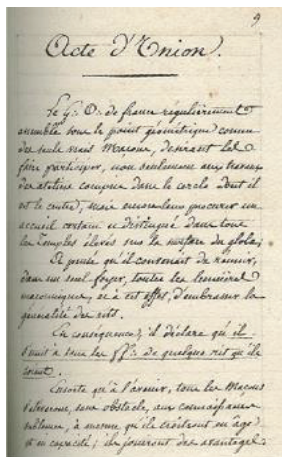 9
Acte d'Union.
Le G∴ O∴ de france régulièrement
assemblé sous le point géométrique connu
des seuls vrais Maçons, désirant les
faire participer, non seulement aux travaux
des ateliers compris dans le cercle dont il
est le centre, mais encore leur procurer un
accueil certain et distingué dans tous
les temples élevés sur la surface du globe;
A pensé qu'il convenait de réunir,
dans un seul foyer, toutes les lumières
maçonniques, et à cet effet, d'embrasser la
généralité des rits.
En conséquence, il déclare qu'il
s'unit à tous les ff∴ de quelque rit qu'ils
soient.
Ensorte qu'à l'avenir, tous les Maçons
sans obstacle, aux connaissances
sublimes, à mesure qu'ils croîtront en âge
et en capacité; ils jouiront des avantages